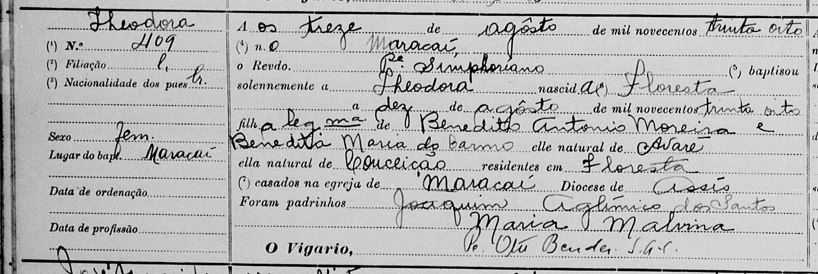 Theodora
(¹) N.º 409
(²) Filiação l.
(³) Nacionalidade dos paes br.
Sexo fem.
Lugar do bapt. Maracaí
Data de ordenação
Data de profissão
A os treze de agôsto de mil novecentos trinta oito
(⁴) n.o Maracaí,
o Revdo. Pe. Simphoriano (⁵) baptisou
solennemente a Theodora nascida (⁶) Floresta
a dez de agôsto de mil novecentos trinta oito
filha leg.ma de Benedito Antonio Moreira e
Benedita Maria do Carmo elle natural de Avaré
ella natural de Conceição residentes em Floresta
(⁷) casados na egreja de Maracaí Diocese de Assis
Foram padrinhos Joaquim dos Santos
Maria Malvina
O Vigario, Pe. Otto Bender